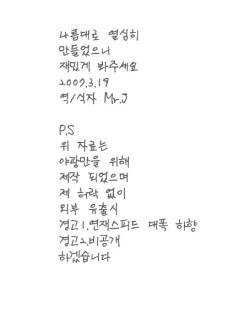 나름대로 열심히
만들었으니
재밌게 봐주세요
2009.3.19
역/식자 Mr.J
P.S
위 자료는
야광만을 위해
제작 되었으며
제 허락 없이
외부 유출시
경고1.연재스피드 대폭 하향
경고2.비공개
하겠습니다